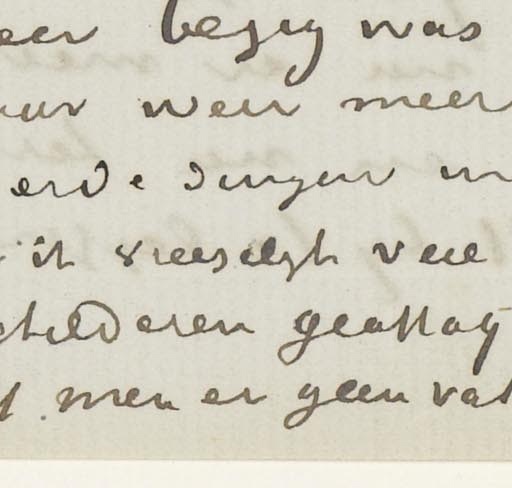 eer bezig was
aar weer meer
erde dingen in
ik vreeselijk veel
schilderen
men er geen vat